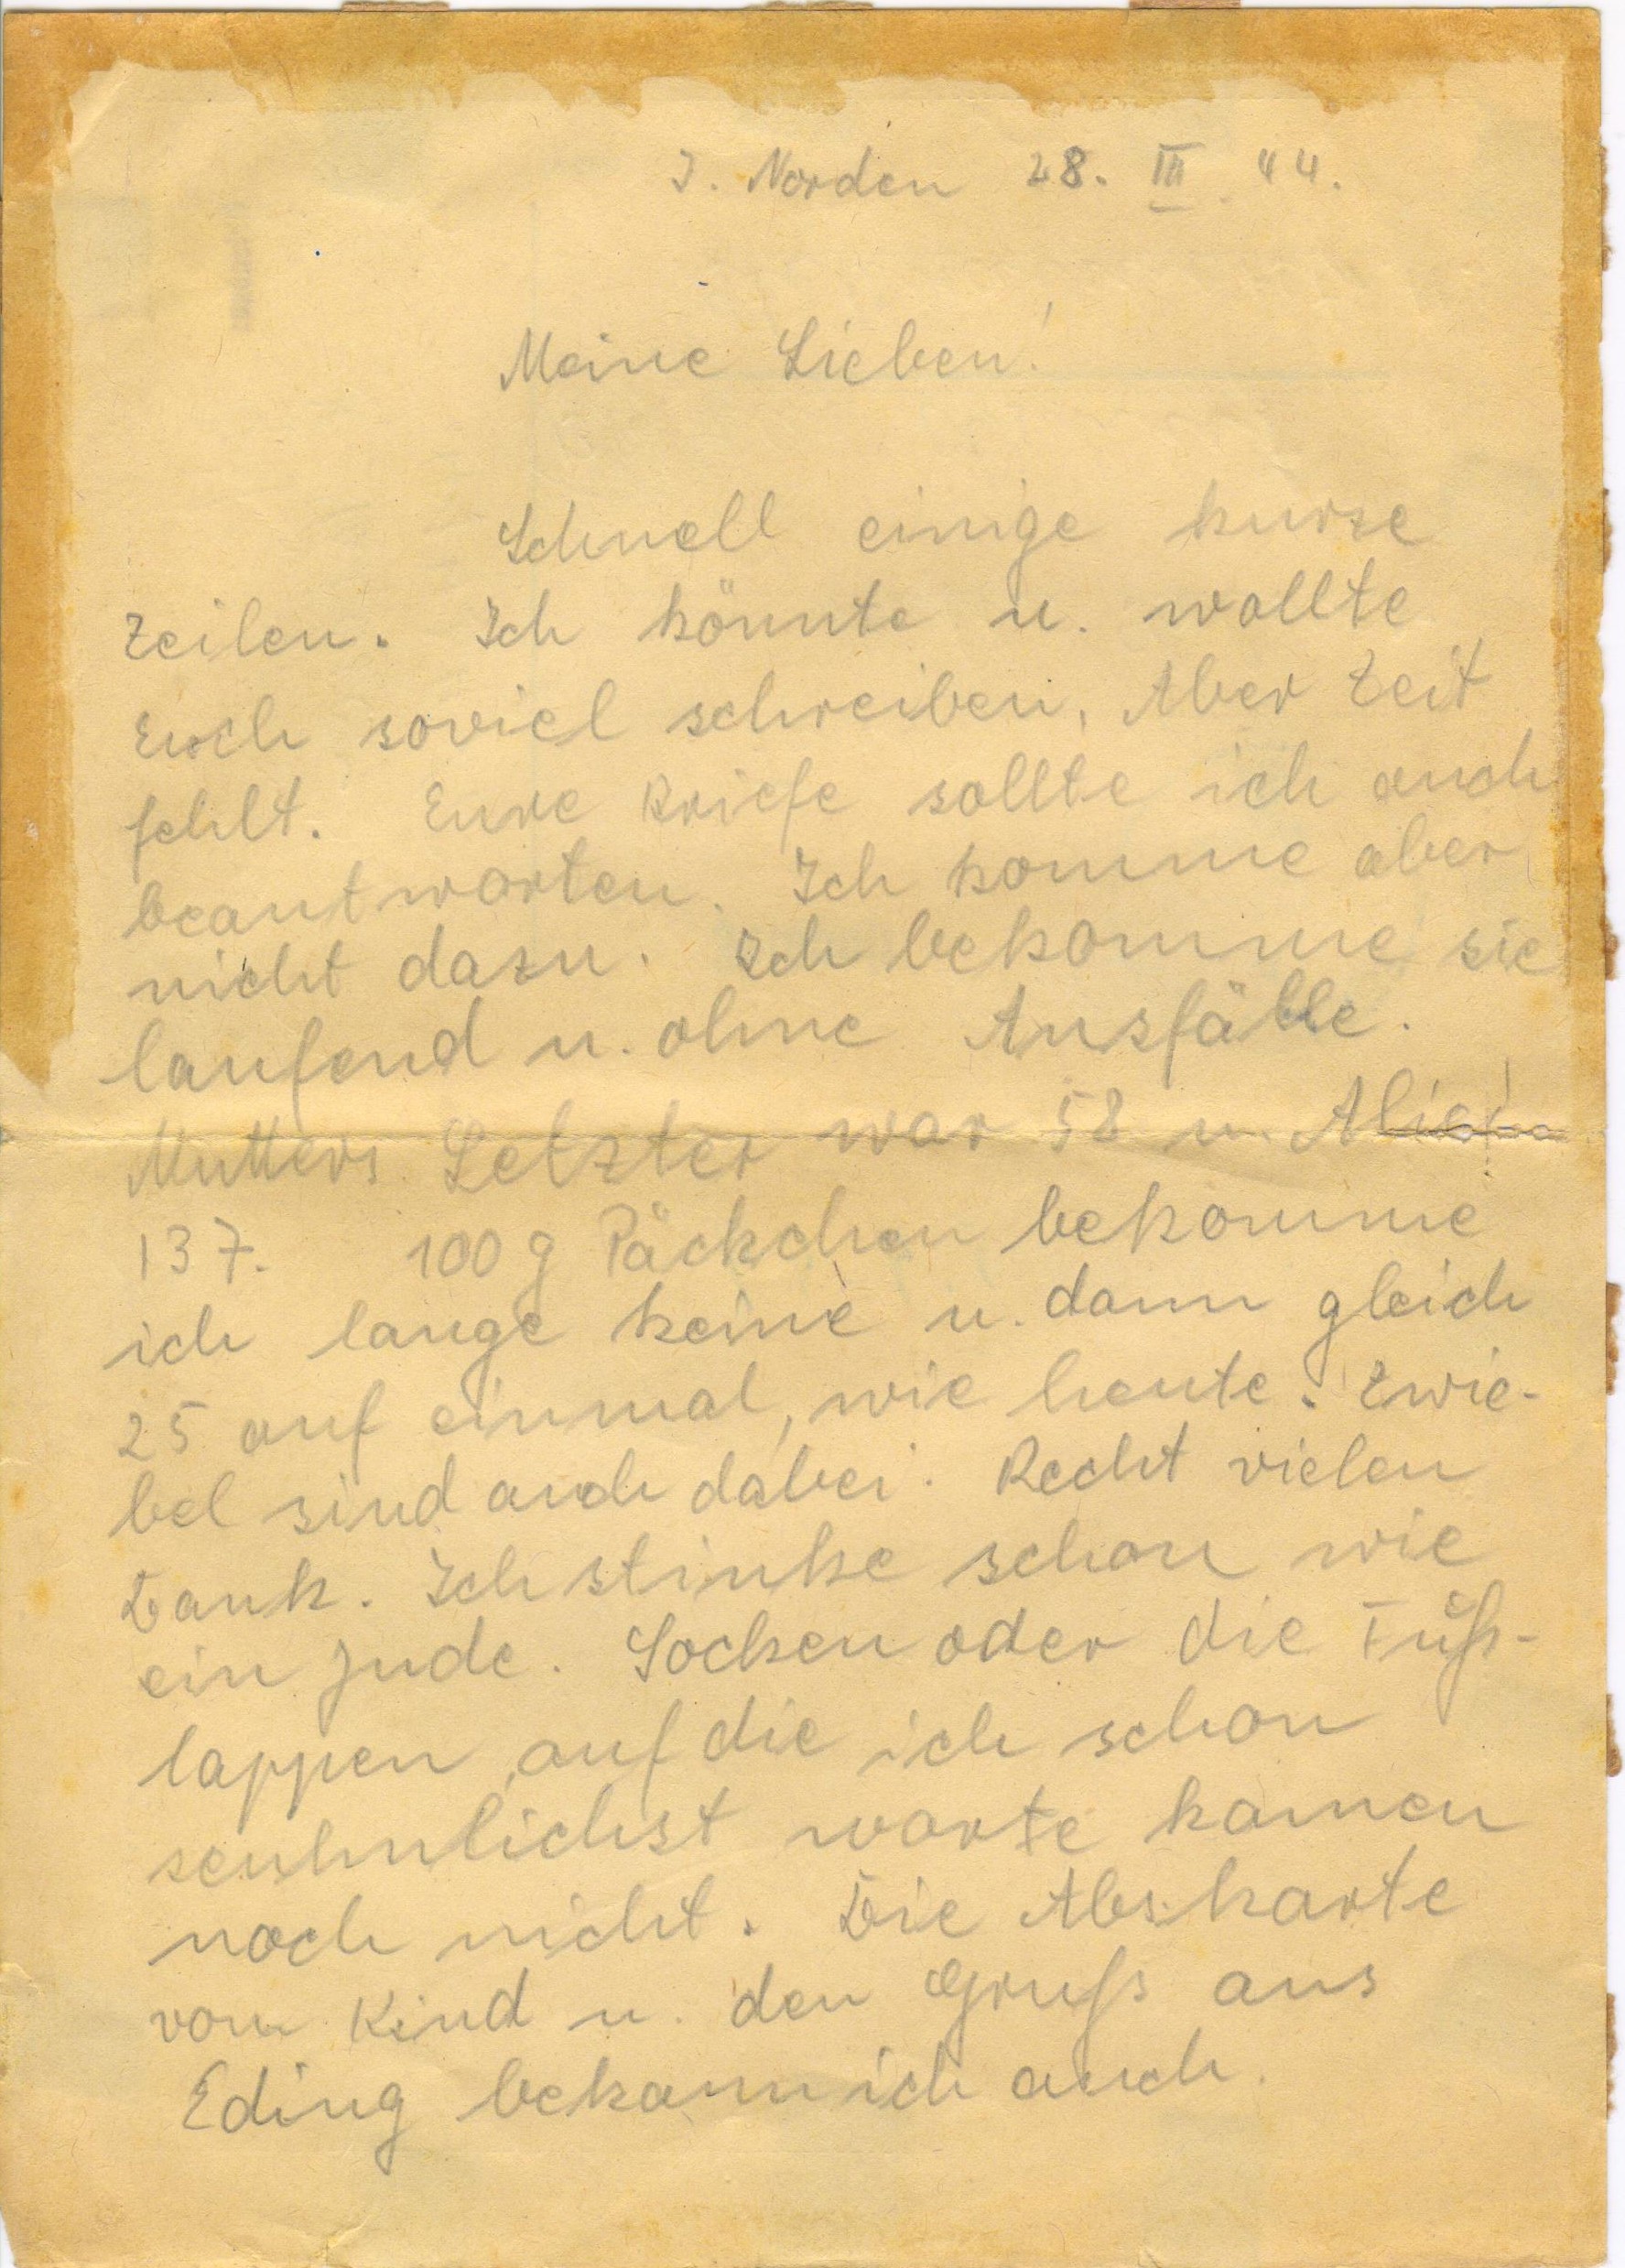 I. Norden 28. III. 44.
Meine Lieben!
Schnell einige kurze
Zeilen. Ich könnte u. wollte
Euch soviel schreiben, Aber Zeit
fehlt. Eure Briefe sollte ich auch
beantworten. Ich komme aber
nicht dazu. Ich bekomme sie
laufend u. ohne Ausfälle.
Mutters Letzter war 58 u.
137. 100 g Päckchen bekomme
ich lange keine u. dann gleich
25 auf einmal, wie heute. Zwie-
bel sind auch dabei. Recht vielen
Dank. Ich stinke schon wie
ein Jude. Socken oder die Fuß-
lappen, auf die ich schon
senhnlichst warte kamen
noch nicht. Die Abs.karte
vom Kind u. den Gruß aus
Eding bekam ich auch.